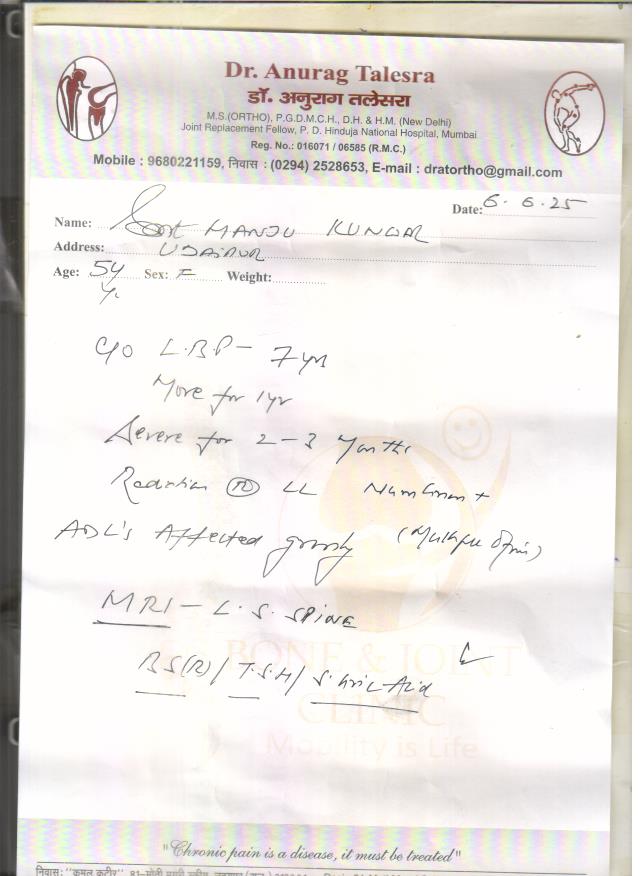 Dr. Anurag Talesra
डॉ. अनुराग तलेसरा
M.S.(ORTHO), P.G.D.M.C.H., D.H. & H.M. (New Delhi)
Joint Replacement Fellow, P. D. Hinduja National Hospital, Mumbai
Reg. No.: 016071 / 06585 (R.M.C.)
Mobile : 9680221159, निवास : (0294) 2528653, E-mail : dratortho@gmail.com
Date: 6.6.25
Name: MANJU KUNWAR
Address: UDAIPUR
Age: 54 Sex: F Weight:
Y.
C/O L.B.P - 7 yr
More for 1yr
Severe for 2-3 Months
Radiation (R) LL Numbness +
ADL's Affected grossly (Multiple
MRI - L.S. SPINE
BS(R) / T.S.H / S. Uric Acid
BONE & JOINT
CLINIC
Mobility is Life
"Chronic pain is a disease, it must be treated"
निवास: "कमल कुटीर"